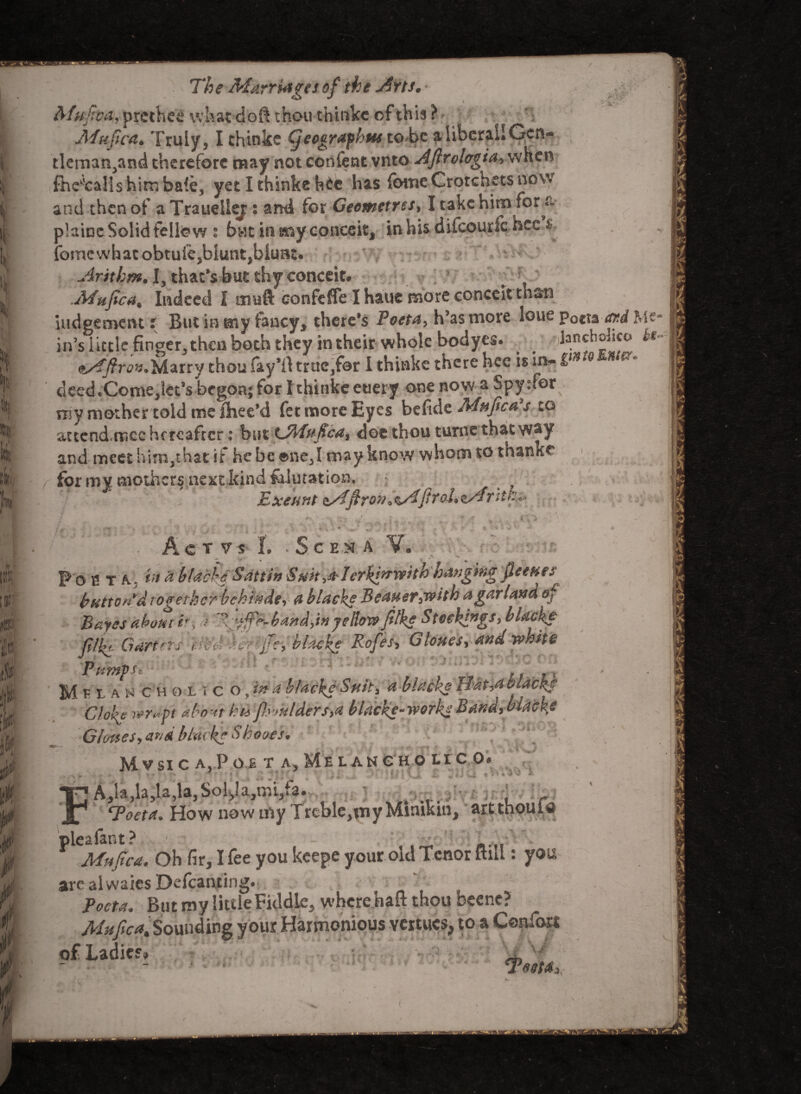 The Marriages of the Arts.
Musica, prethee what dost thou thinke of this?
Musica. Truly, I thinke Geographus to be a liberall Gen-
tleman,and therefore may not consent vnto Astrologia, when
she calls him base, yet I thinke hee has some Crotchets now
and then of a Traueller: and for Geometres, I take him for a
plaine Solid fellow: but in my conceit, in his discourse hee's
somewhat obtuse,blunt,blunt.
Arithm. I, that's but thy conceit.
Musica. Indeed I must confesse I haue more conceit than
iudgement: But in my fancy, there's Poeta, h'as more loue
in's little finger,then both they in their whole bodyes.
Poeta and Me-
lancholico be-
gin to Enter.
Astron. Marry thou say'st true,for I thinke there hee is in-
deed.Come,let's begon; for I thinke euery one now a Spy:for
my mother told me shee'd set more Eyes beside Musica's to
attend mee hereafter: but Musica, doe thou turne that way
and meet him,that if he be one,I may know whom to thanke
for my mothers next kind salutation.
Exeunt Astron. Astrol. Arith.
ACTVS I. SCENA V.
POETA, in a blacke Sattin Suit,a Ierkin with hanging sleeues
button'd together behinde, a blacke Beauer,with a garland of
Bayes about it, a Ruffe-band,in yellow silke Stockings, blacke
silke Garters blacke Roses, Gloues, and white
Pumps.
MELANCHOLICO, in a blacke Suit, a blacke Hat,a blacke
Cloke wrapt about his shoulders,a blacke-worke Band, blacke
Gloues, and blacke Shooes.
MVSICA, POETA, MELANCHOLICO.
FA,la,la,la,la, Sol,la,mi,fa.
Poeta. How now my Treble,my Minikin, art thou so
pleasant?
Musica. Oh sir, I see you keepe your old Tenor still: you
are alwaies Descanting.
Poeta. But my little Fiddle, where hast thou beene?
Musica. Sounding your Harmonious vertues, to a Consort
of Ladies.
Poeta.